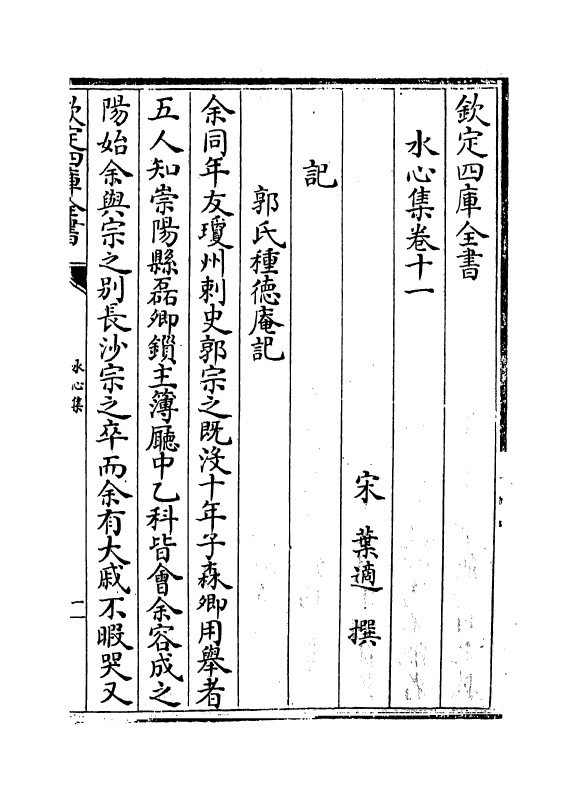 欽定四庫全書
水心集卷十一
宋 葉適 撰
記
郭氏種德庵記
余同年友瓊州刺史郭宗之既沒十年子森卿用舉者
五人知崇陽縣磊卿鎖主簿廳中乙科皆會余容成之
陽始余與宗之别長沙宗之卒而余有大戚不暇哭又
欽定四庫全書
水心集